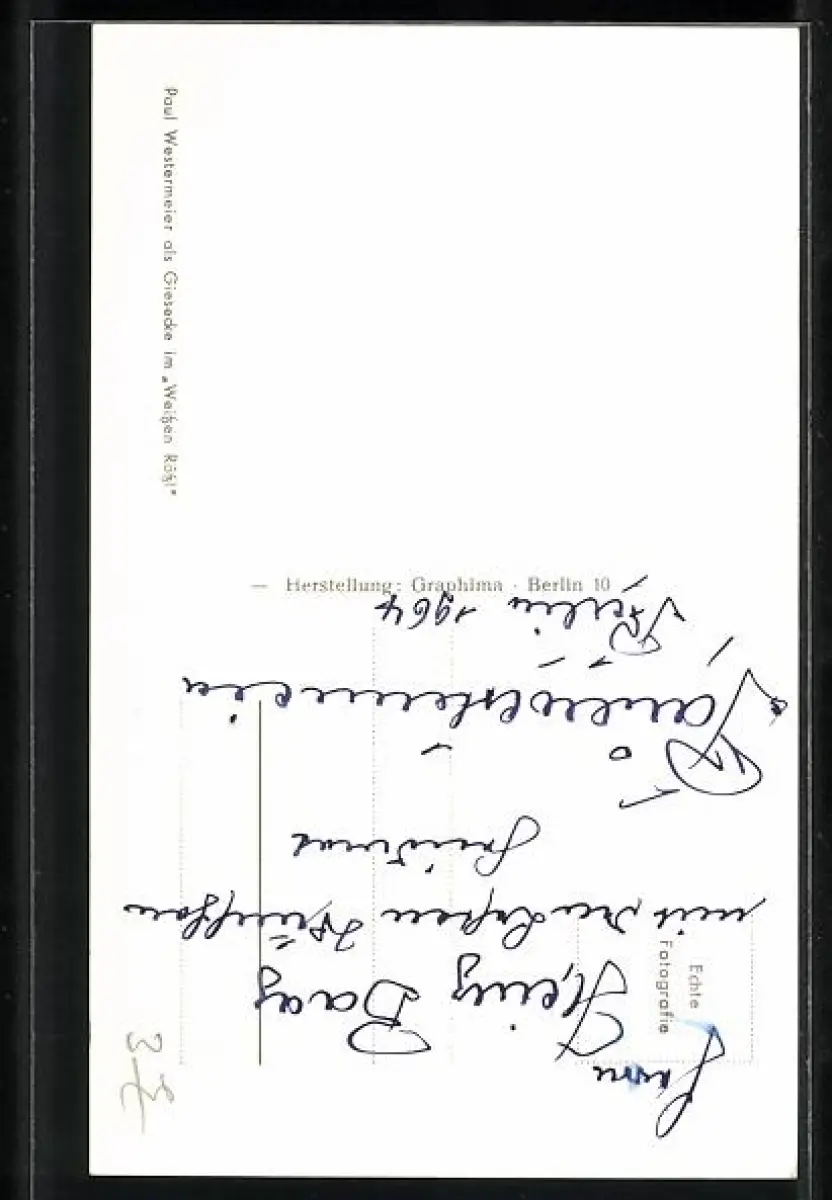 Paul Westermeier als Giesecke im „Weißen Rößl"
— Herstellung: Graphima · Berlin 10
Echte
Fotografie
Heinz Baas
mit den besten Wünschen
Paul Westermeier
Berlin 1964